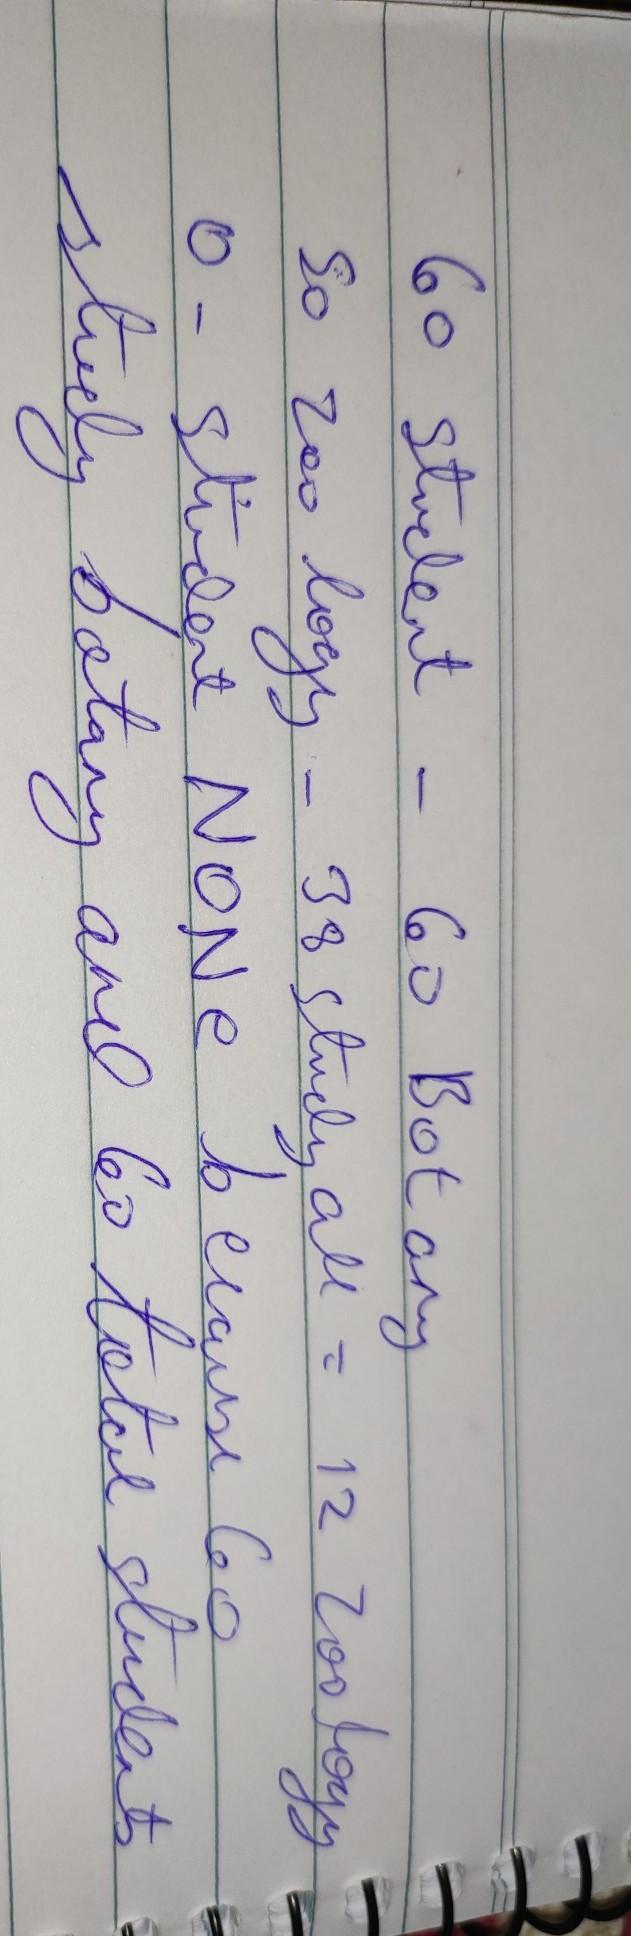 60 student - 60 Botany
50 zoology - 38 study all = 12 zoology
0 - student NONe because 60
study botany and 60 total students